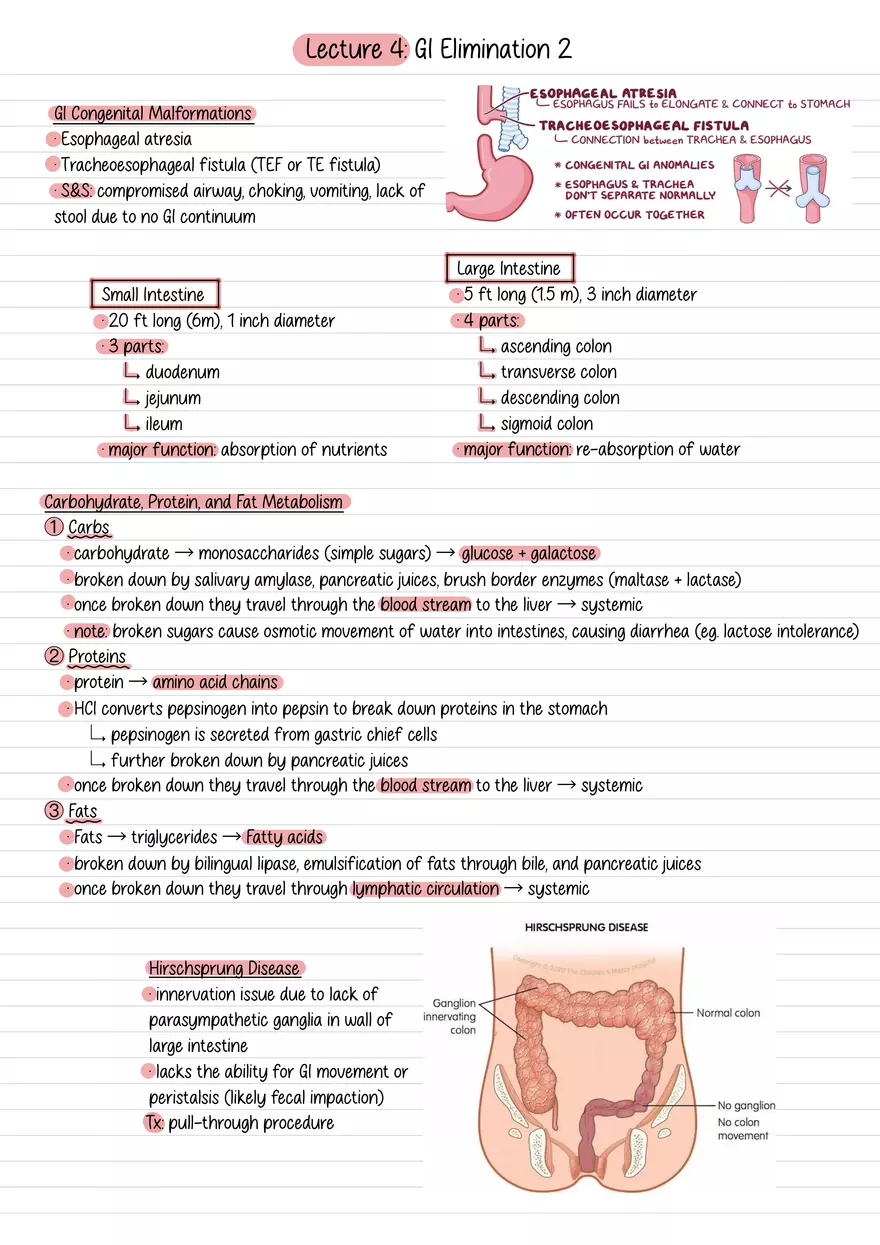 Lecture 4: GI Elimination 2
GI Congenital Malformations
· Esophageal atresia
· Tracheoesophageal fistula (TEF or TE fistula)
· S&S: compromised airway, choking, vomiting, lack of
stool due to no GI continuum
ESOPHAGEAL ATRESIA
ESOPHAGUS FAILS to ELONGATE & CONNECT to STOMACH
TRACHEOESOPHAGEAL FISTULA
CONNECTION between TRACHEA & ESOPHAGUS
* CONGENITAL GI ANOMALIES
* ESOPHAGUS & TRACHEA
DON'T SEPARATE NORMALLY
* OFTEN OCCUR TOGETHER
Small Intestine
· 20 ft long (6m), 1 inch diameter
· 3 parts:
duodenum
jejunum
ileum
· major function: absorption of nutrients
Large Intestine
· 5 ft long (1.5 m), 3 inch diameter
· 4 parts:
ascending colon
transverse colon
descending colon
sigmoid colon
· major function: re-absorption of water
Carbohydrate, Protein, and Fat Metabolism
① Carbs
· carbohydrate → monosaccharides (simple sugars) → glucose + galactose
· broken down by salivary amylase, pancreatic juices, brush border enzymes (maltase + lactase)
· once broken down they travel through the blood stream to the liver → systemic
· note: broken sugars cause osmotic movement of water into intestines, causing diarrhea (eg. lactose intolerance)
② Proteins
· protein → amino acid chains
· HCl converts pepsinogen into pepsin to break down proteins in the stomach
pepsinogen is secreted from gastric chief cells
further broken down by pancreatic juices
· once broken down they travel through the blood stream to the liver → systemic
③ Fats
· Fats → triglycerides → Fatty acids
· broken down by bilingual lipase, emulsification of fats through bile, and pancreatic juices
· once broken down they travel through lymphatic circulation → systemic
Hirschsprung Disease
· innervation issue due to lack of
parasympathetic ganglia in wall of
large intestine
· lacks the ability for GI movement or
peristalsis (likely fecal impaction)
Tx: pull-through procedure
HIRSCHSPRUNG DISEASE
Ganglion
innervating
colon
Normal colon
No ganglion
No colon
movement